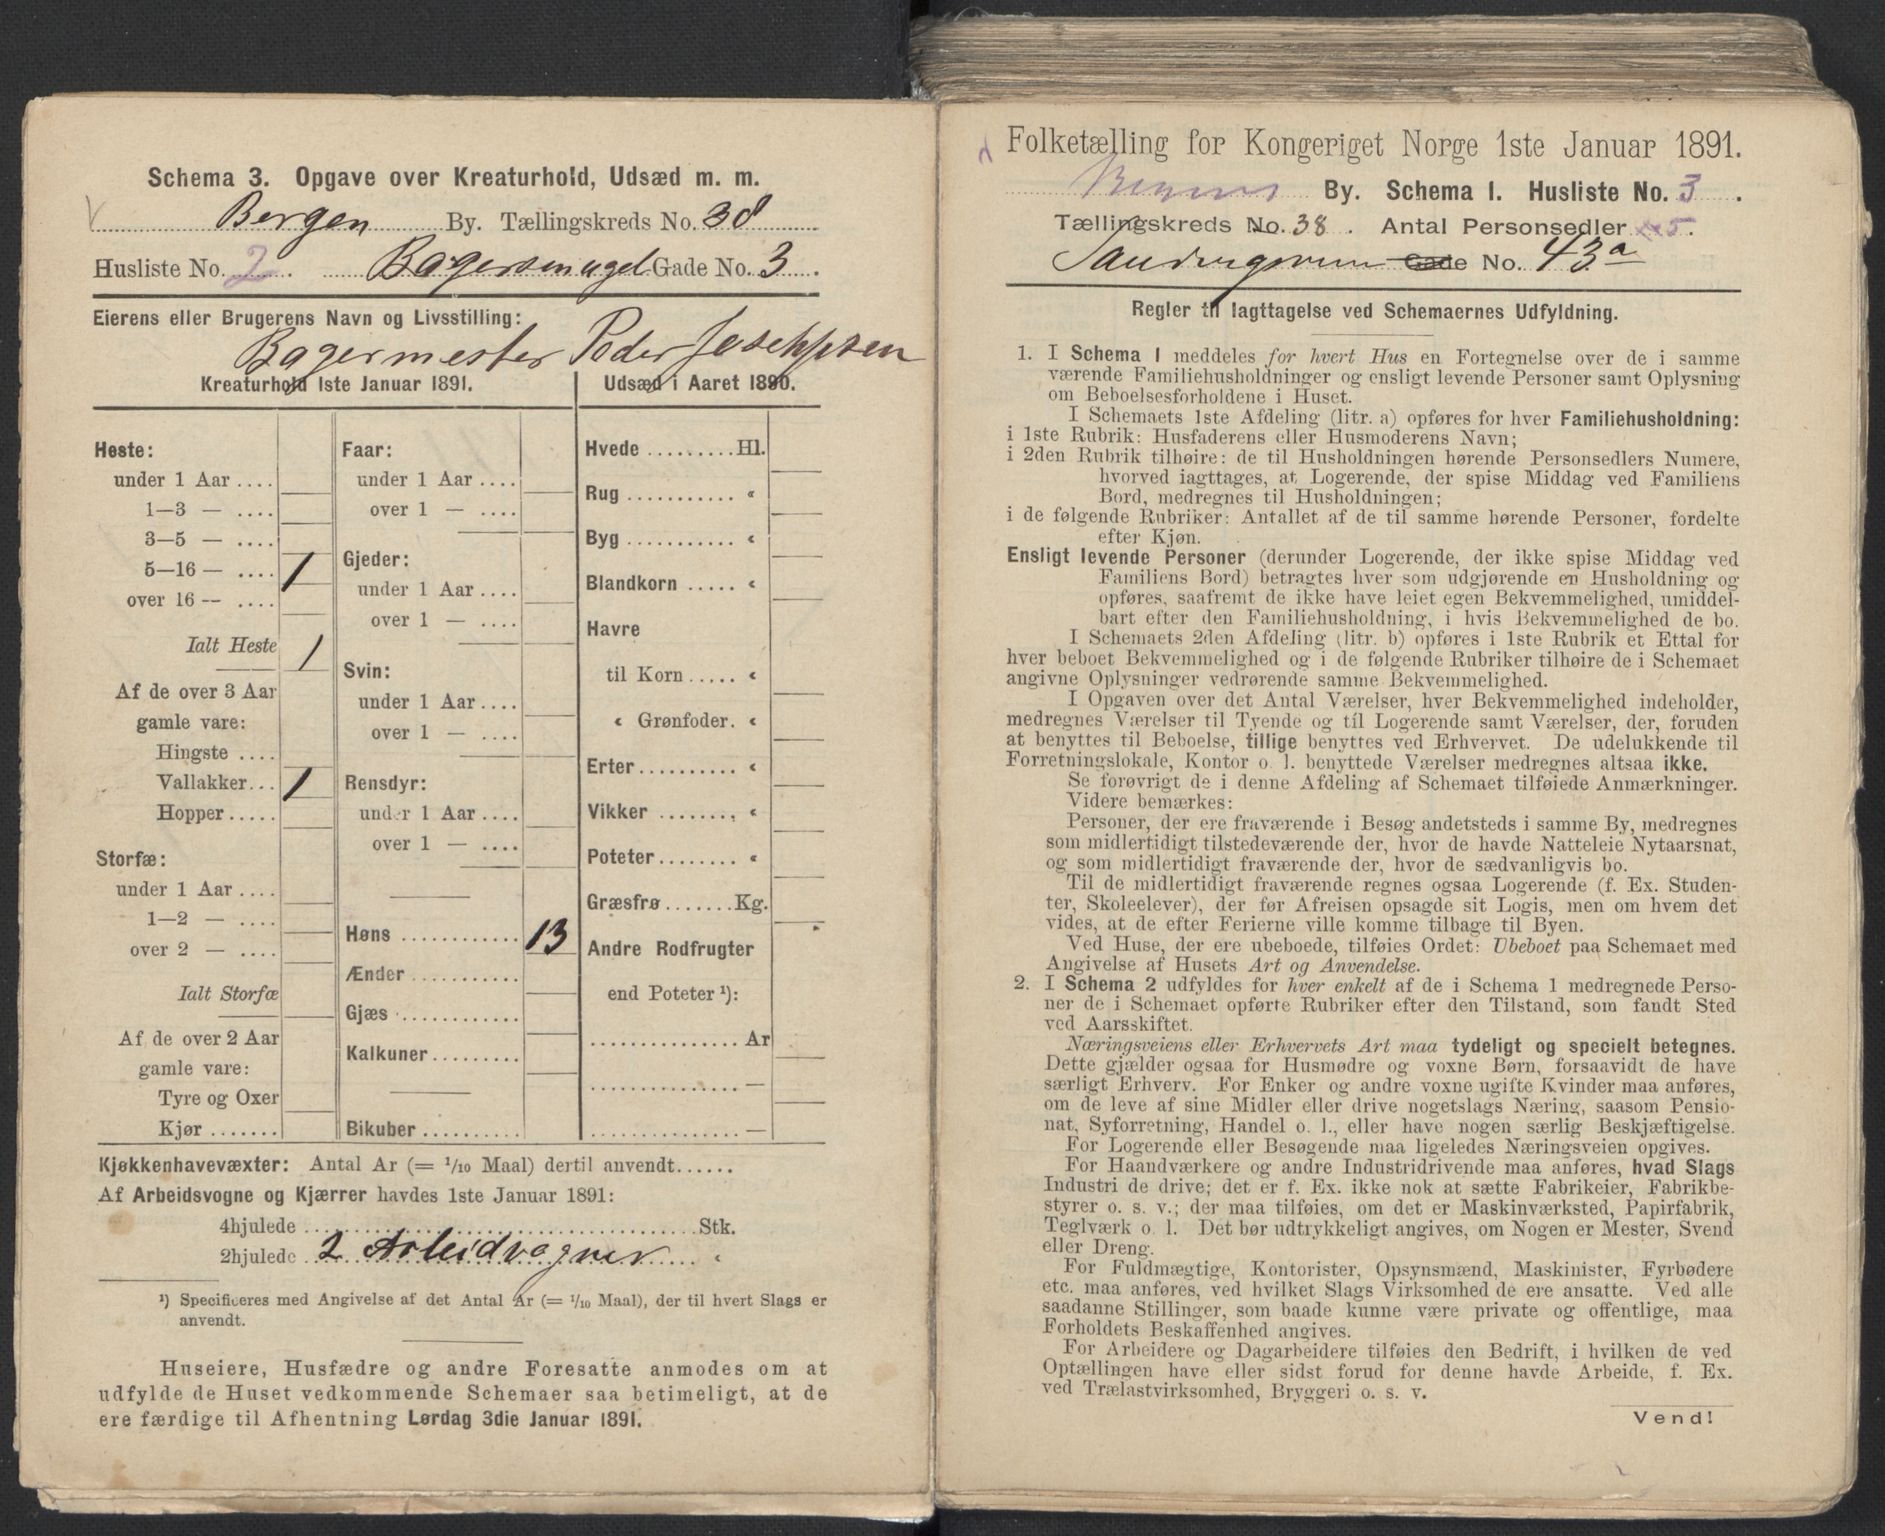 Schema 3. Opgave over Kreaturhold, Udsæd m. m.
Bergen By. Tællingskreds No. 38
Husliste No. 2. Bagersmuget Gade No. 3.
Eierens eller Brugerens Navn og Livsstilling:
Bagermester Peder Josephsen
Kreaturhold 1ste Januar 1891.
Heste:
under 1 Aar ....
1—3 — ....
3—5 — ....
5—16 — .... 1
over 16 — ....
Ialt Heste 1
Af de over 3 Aar
gamle vare:
Hingste ....
Vallakker... 1
Hopper.....
Storfæ:
under 1 Aar....
1—2 — ....
over 2 — ....
Ialt Storfæ
Af de over 2 Aar
gamle vare:
Tyre og Oxer
Kjør .......
Faar:
under 1 Aar ....
over 1 — ....
Gjeder:
under 1 Aar ....
over 1 — ....
Svin:
under 1 Aar....
over 1 — ....
Rensdyr:
under 1 Aar ....
over 1 — ....
Høns ............ 13
Ænder ...........
Gjæs ............
Kalkuner.........
Bikuber..........
Udsæd i Aaret 1890.
Hvede .........Hl.
Rug ........... «
Byg ........... «
Blandkorn ..... «
Havre
til Korn..... «
« Grønfoder. «
Erter.......... «
Vikker ........ «
Poteter........ «
Græsfrø.......Kg.
Andre Rodfrugter
end Poteter ¹):
................ Ar
................ —
................ —
Kjøkkenhavevæxter: Antal Ar (= 1/10 Maal) dertil anvendt......
Af Arbeidsvogne og Kjærrer havdes 1ste Januar 1891:
4hjulede ........................................Stk.
2hjulede 2 Arbeidvogner «
¹) Specificeres med Angivelse af det Antal Ar (= 1/10 Maal), der til hvert Slags er
anvendt.
Huseiere, Husfædre og andre Foresatte anmodes om at
udfylde de Huset vedkommende Schemaer saa betimeligt, at de
ere færdige til Afhentning Lørdag 3die Januar 1891.
Folketælling for Kongeriget Norge 1ste Januar 1891.
Bergens By. Schema 1. Husliste No. 3.
Tællingskreds No. 38. Antal Personsedler 5.
Gade No. 43a
Regler til Iagttagelse ved Schemaernes Udfyldning.
1. I Schema 1 meddeles for hvert Hus en Fortegnelse over de i samme
værende Familiehusholdninger og ensligt levende Personer samt Oplysning
om Beboelsesforholdene i Huset.
I Schemaets 1ste Afdeling (litr. a) opføres for hver Familiehusholdning:
i 1ste Rubrik: Husfaderens eller Husmoderens Navn;
i 2den Rubrik tilhøire: de til Husholdningen hørende Personsedlers Numere,
hvorved iagttages, at Logerende, der spise Middag ved Familiens
Bord, medregnes til Husholdningen;
i de følgende Rubriker: Antallet af de til samme hørende Personer, fordelte
efter Kjøn.
Ensligt levende Personer (derunder Logerende, der ikke spise Middag ved
Familiens Bord) betragtes hver som udgjørende en Husholdning og
opføres, saafremt de ikke have leiet egen Bekvemmelighed, umiddel-
bart efter den Familiehusholdning, i hvis Bekvemmelighed de bo.
I Schemaets 2den Afdeling (litr. b) opføres i 1ste Rubrik et Ettal for
hver beboet Bekvemmelighed og i de følgende Rubriker tilhøire de i Schemaet
angivne Oplysninger vedrørende samme Bekvemmelighed.
I Opgaven over det Antal Værelser, hver Bekvemmelighed indeholder,
medregnes Værelser til Tyende og til Logerende samt Værelser, der, foruden
at benyttes til Beboelse, tillige benyttes ved Erhvervet. De udelukkende til
Forretningslokale, Kontor o. l. benyttede Værelser medregnes altsaa ikke.
Se forøvrigt de i denne Afdeling af Schemaet tilføiede Anmærkninger.
Videre bemærkes:
Personer, der ere fraværende i Besøg andetsteds i samme By, medregnes
som midlertidigt tilstedeværende der, hvor de havde Natteleie Nytaarsnat,
og som midlertidigt fraværende der, hvor de sædvanligvis bo.
Til de midlertidigt fraværende regnes ogsaa Logerende (f. Ex. Studen-
ter, Skoleelever), der før Afreisen opsagde sit Logis, men om hvem det
vides, at de efter Ferierne ville komme tilbage til Byen.
Ved Huse, der ere ubeboede, tilføies Ordet: Ubeboet paa Schemaet med
Angivelse af Husets Art og Anvendelse.
2. I Schema 2 udfyldes for hver enkelt af de i Schema 1 medregnede Perso-
ner de i Schemaet opførte Rubriker efter den Tilstand, som fandt Sted
ved Aarsskiftet.
Næringsveiens eller Erhvervets Art maa tydeligt og specielt betegnes.
Dette gjælder ogsaa for Husmødre og voxne Børn, forsaavidt de have
særligt Erhverv. For Enker og andre voxne ugifte Kvinder maa anføres,
om de leve af sine Midler eller drive nogetslags Næring, saasom Pensio-
nat, Syforretning, Handel o. l., eller have nogen særlig Beskjæftigelse.
For Logerende eller Besøgende maa ligeledes Næringsveien opgives.
For Haandværkere og andre Industridrivende maa anføres, hvad Slags
Industri de drive; det er f. Ex. ikke nok at sætte Fabrikeier, Fabrikbe-
styrer o. s. v.; der maa tilføies, om det er Maskinværksted, Papirfabrik,
Teglværk o. l. Det bør udtrykkeligt angives, om Nogen er Mester, Svend
eller Dreng.
For Fuldmægtige, Kontorister, Opsynsmænd, Maskinister, Fyrbødere
etc. maa anføres, ved hvilket Slags Virksomhed de ere ansatte. Ved alle
saadanne Stillinger, som baade kunne være private og offentlige, maa
Forholdets Beskaffenhed angives.
For Arbeidere og Dagarbeidere tilføies den Bedrift, i hvilken de ved
Optællingen have eller sidst forud for denne havde Arbeide, f. Ex.
ved Trælastvirksomhed, Bryggeri o. s. v.
Vend!